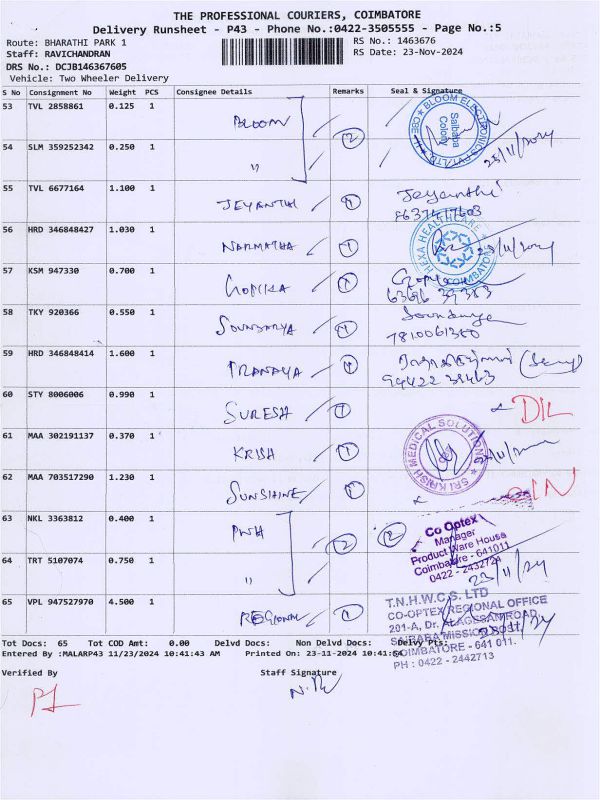 THE PROFESSIONAL COURIERS, COIMBATORE
Delivery Runsheet - P43 - Phone No.:0422-3505555 - Page No.:5
Route: BHARATHI PARK 1
RS No.: 1463676
Staff: RAVICHANDRAN
RS Date: 23-Nov-2024
DRS No.: DCJB146367605
Vehicle: Two Wheeler Delivery
S No Consignment No Weight PCS Consignee Details Remarks Seal & Signature
53 TVL 2858861 0.125 1 BLOOM 2
BLOOM ELECTRONICS PVT/LTD
Saibaba Colony
54 SLM 359252342 0.250 1 "
55 TVL 6677164 1.100 1 JEYANTHI 1 Jeyanthi
56 HRD 346848427 1.030 1 NARMATHA 1
HEXA HEALTHCARE
COIMBATORE
57 KSM 947330 0.700 1 GOPIKA 1
58 TKY 920366 0.550 1 SOUNDARYA 1 Soundarya
7810061380
59 HRD 346848414 1.600 1 PRANAYA 1
60 STY 8006006 0.990 1 SURESH 1 DIL
61 MAA 302191137 0.370 1 KRISH 1
SRI KRISH MEDICAL SOLUTIONS
62 MAA 703517290 1.230 1 SUNSHINE 1
63 NKL 3363812 0.400 1 PWH 2 2
Co Optex
Manager
Product Ware House
Coimbatore - 641011
0422 - 2432724
64 TRT 5107074 0.750 1 "
23/11/24
65 VPL 947527970 4.500 1 REGIONAL 1
T.N.H.W.C.S. LTD
CO-OPTEX REGIONAL OFFICE
201-A, Dr. ALAGESAN ROAD
SAIBABA MISSION POST,
COIMBATORE - 641 011.
PH : 0422 - 2442713
Tot Docs: 65 Tot COD Amt: 0.00 Delvd Docs: Non Delvd Docs: Delvy Pts:
Entered By :MALARP43 11/23/2024 10:41:43 AM Printed On: 23-11-2024 10:41:54
Verified By
Staff Signature